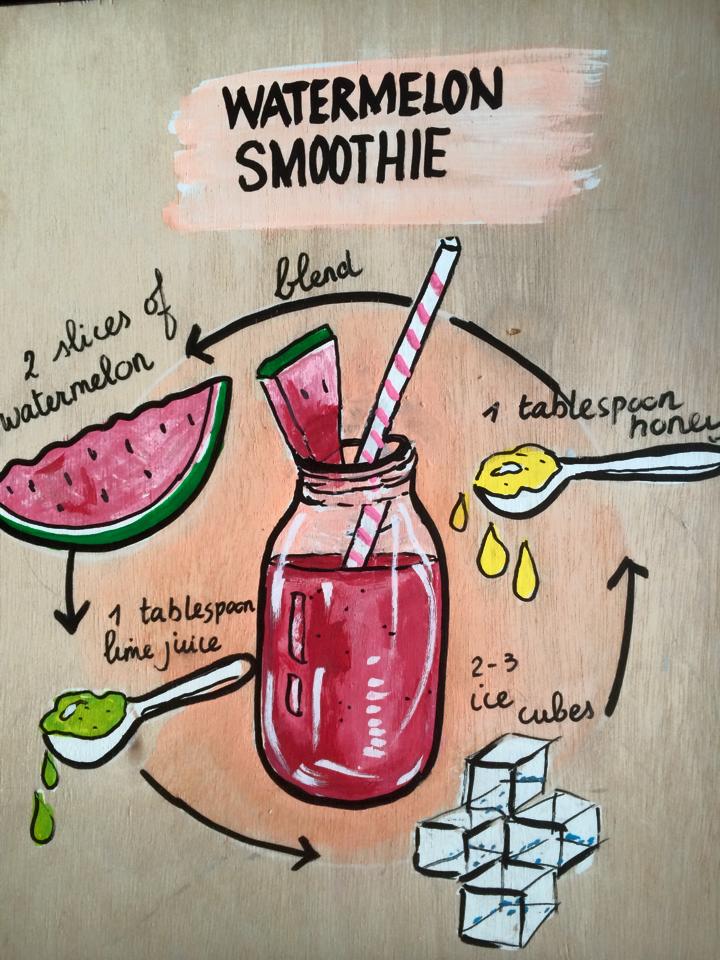 WATERMELON
SMOOTHIE
blend
2 slices of
watermelon
1 tablespoon
honey
1 tablespoon
lime juice
2-3
ice cubes